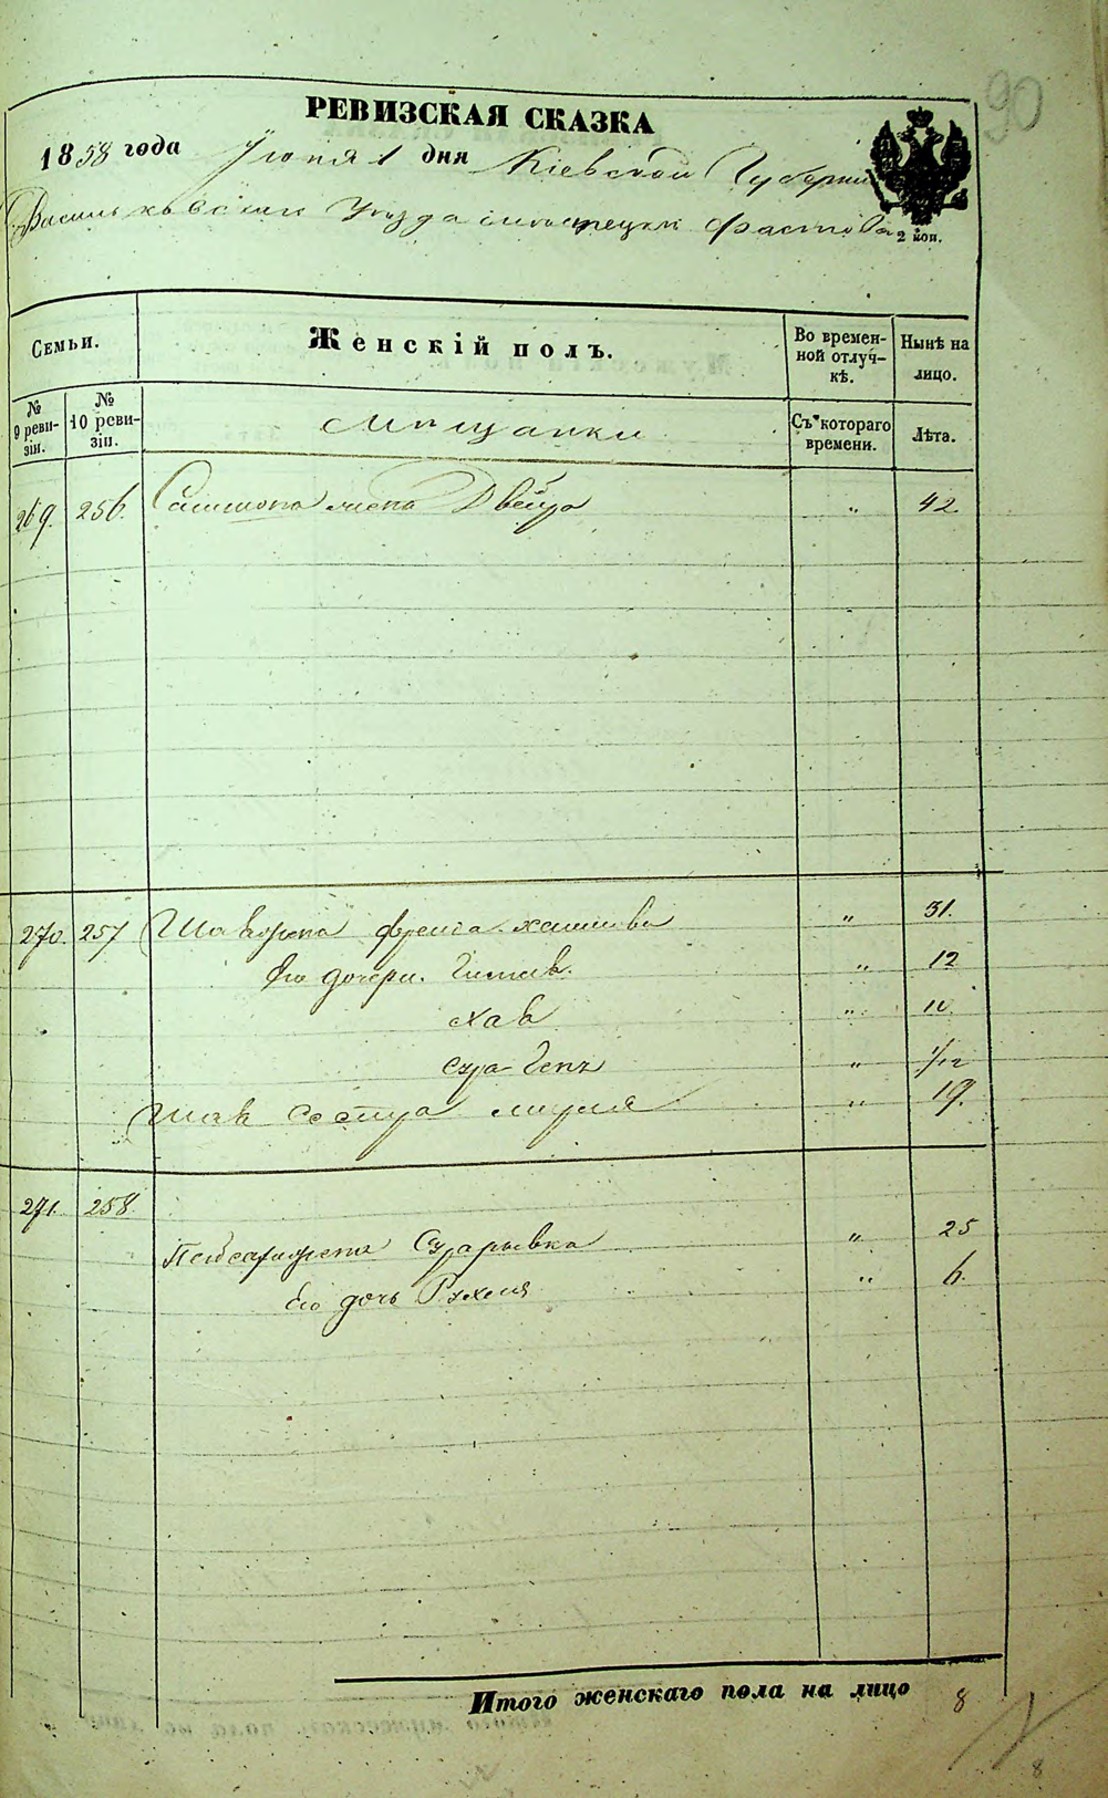 90
РЕВИЗСКАЯ СКАЗКА
1858 года Іюня 1 дня Кіевской Губерніи
Васильковскаго Уѣзда мѣстечки Фастова
2 коп.
Семьи.
Женскій полъ.
Во времен-
ной отлуч-
кѣ.
Нынѣ на
лицо.
№
9 реви-
зіи.
№
10 реви-
зіи.
Мѣщанки
Съ котораго
времени.
Лѣта.
269. 256. жена Двейра " 42.
270. 257 Фрейда " 31.
Его дочери. " 12
Хава " 10
Сура " 1/12
сестра " 19.
271. 258.
жена " 25
Его дочь Рухля " 6.
Итого женскаго пола на лицо 8
8